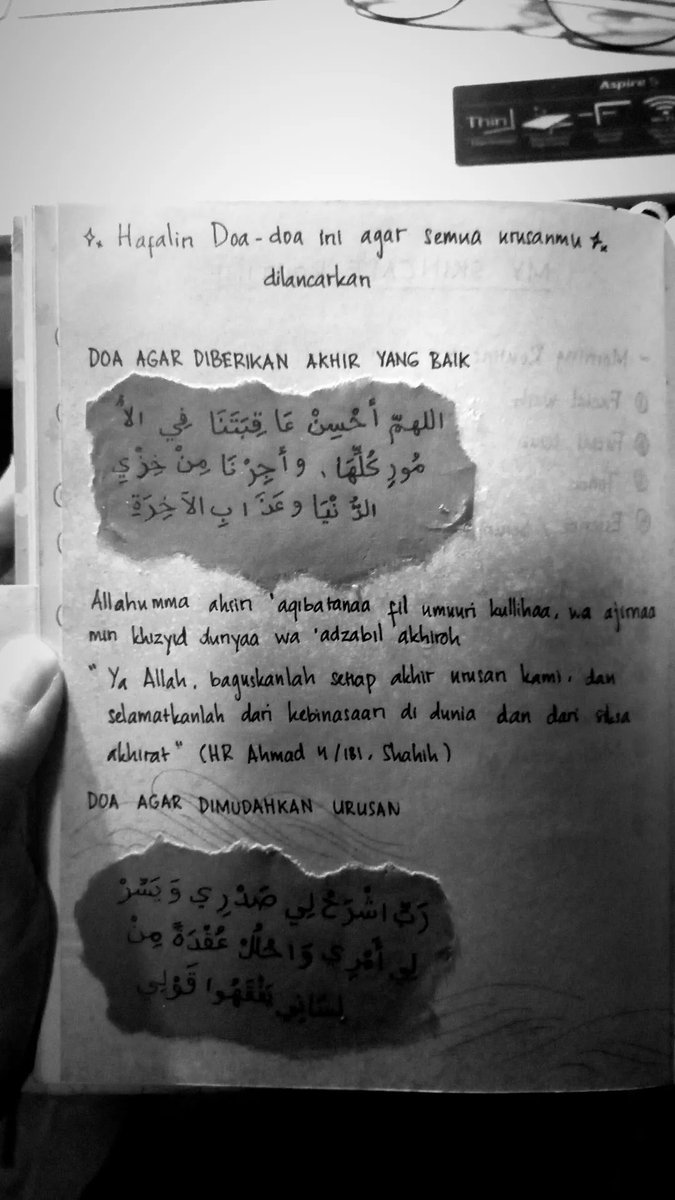 Aspire 5
Thin
Hafalin Doa-doa ini agar semua urusanmu
dilancarkan
DOA AGAR DIBERIKAN AKHIR YANG BAIK
اللهمّ أَحْسِنْ عَاقِبَتَنَا فِي الأُ
مُورِ كُلِّهَا، وأَجِرْنَا مِنْ خِزْيِ
الدُّنْيَا وعَذَابِ الآخِرَةِ
Allahumma ahsin 'aqibatanaa fil umuuri kullihaa, wa ajirnaa
min khizyid dunyaa wa 'adzabil akhiroh
" Ya Allah, baguskanlah setiap akhir urusan kami, dan
selamatkanlah dari kebinasaan di dunia dan dari siksa
akhirat" (HR Ahmad 4/181, Shahih)
DOA AGAR DIMUDAHKAN URUSAN
رَبِّ اشْرَحْ لِي صَدْرِي وَيَسِّرْ
لِي أَمْرِي وَاحْلُلْ عُقْدَةً مِنْ
لِسَانِي يَفْقَهُوا قَوْلِي